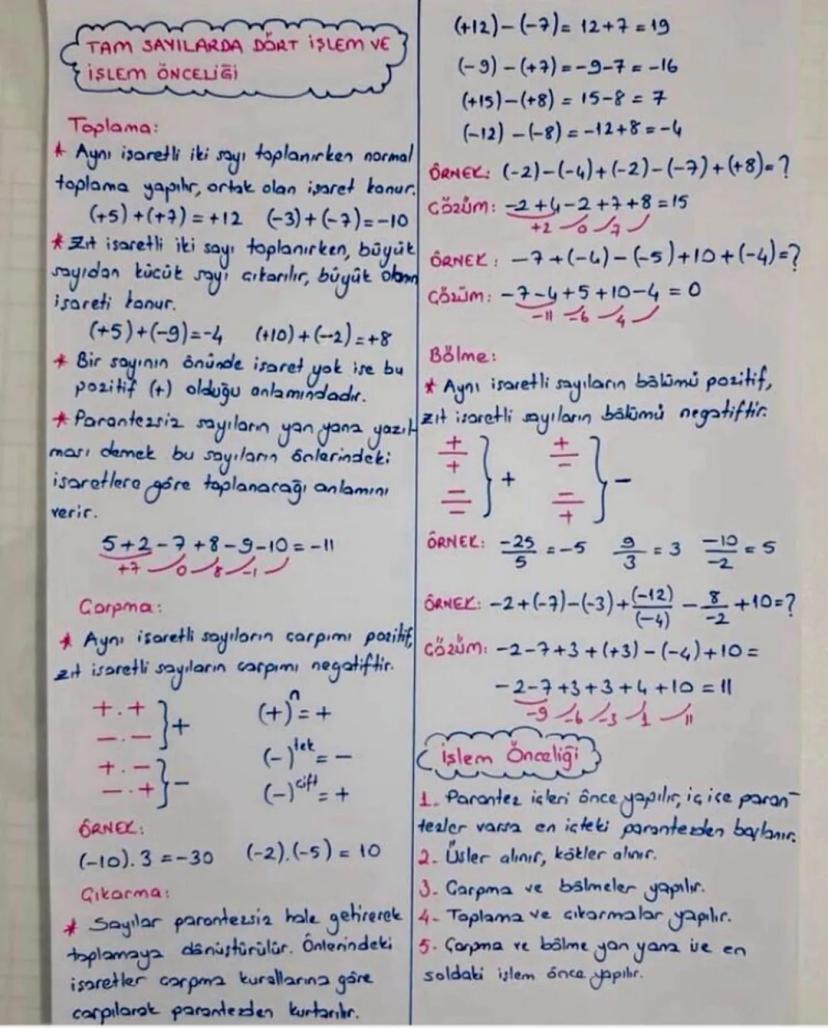 TAM SAYILARDA DÖRT İŞLEM VE
İŞLEM ÖNCELİĞİ
Toplama:
* Aynı işaretli iki sayı toplanırken normal
toplama yapılır, ortak olan işaret konur.
(+5)+(+7)=+12 (-3)+(-7)=-10
* Zıt işaretli iki sayı toplanırken, büyük
sayıdan küçük sayı çıkarılır, büyük olanın
işareti konur.
(+5)+(-9)=-4 (+10)+(-2)=+8
* Bir sayının önünde işaret yok ise bu
pozitif (+) olduğu anlamındadır.
* Parantezsiz sayıların yan yana yazıl
ması demek bu sayıların önlerindeki
işaretlere göre toplanacağı anlamını
verir.
5+2-7+8-9-10=-11
+7 0 8 -1
Çarpma:
* Aynı işaretli sayıların çarpımı pozitif,
zıt işaretli sayıların çarpımı negatiftir.
+ . + } + (+)ⁿ = +
- . -
+ . - } - (-)ᵗᵉᵏ = -
- . + (-)ᶜ̧ⁱᶠᵗ = +
ÖRNEK:
(-10).3=-30 (-2).(-5)=10
Çıkarma:
* Sayılar parantezsiz hale getirerek
toplamaya dönüştürülür. Önlerindeki
işaretler çarpma kurallarına göre
çarpılarak parantezden kurtarılır.
(+12)-(-7)=12+7=19
(-9)-(+7)=-9-7=-16
(+15)-(+8)=15-8=7
(-12)-(-8)=-12+8=-4
ÖRNEK: (-2)-(-4)+(-2)-(-7)+(+8)=?
ÇÖZÜM: -2+4-2+7+8=15
+2 0 7
ÖRNEK: -7+(-4)-(-5)+10+(-4)=?
ÇÖZÜM: -7-4+5+10-4=0
-11 -6 4
Bölme:
* Aynı işaretli sayıların bölümü pozitif,
zıt işaretli sayıların bölümü negatiftir.
+/+ -/- } + +/- -/+ } -
ÖRNEK: -25/5=-5 9/3=3 -10/-2=5
ÖRNEK: -2+(-7)-(-3)+(-12)/(-4)-8/-2+10=?
ÇÖZÜM: -2-7+3+(+3)-(-4)+10=
-2-7+3+3+4+10=11
-9 -6 -3 1 11
İşlem Önceliği
1. Parantez içleri önce yapılır, iç içe paran-
tezler varsa en içteki parantezden başlanır.
2. Üsler alınır, kökler alınır.
3. Çarpma ve bölmeler yapılır.
4- Toplama ve çıkarmalar yapılır.
5. Çarpma ve bölme yan yana ise en
soldaki işlem önce yapılır.